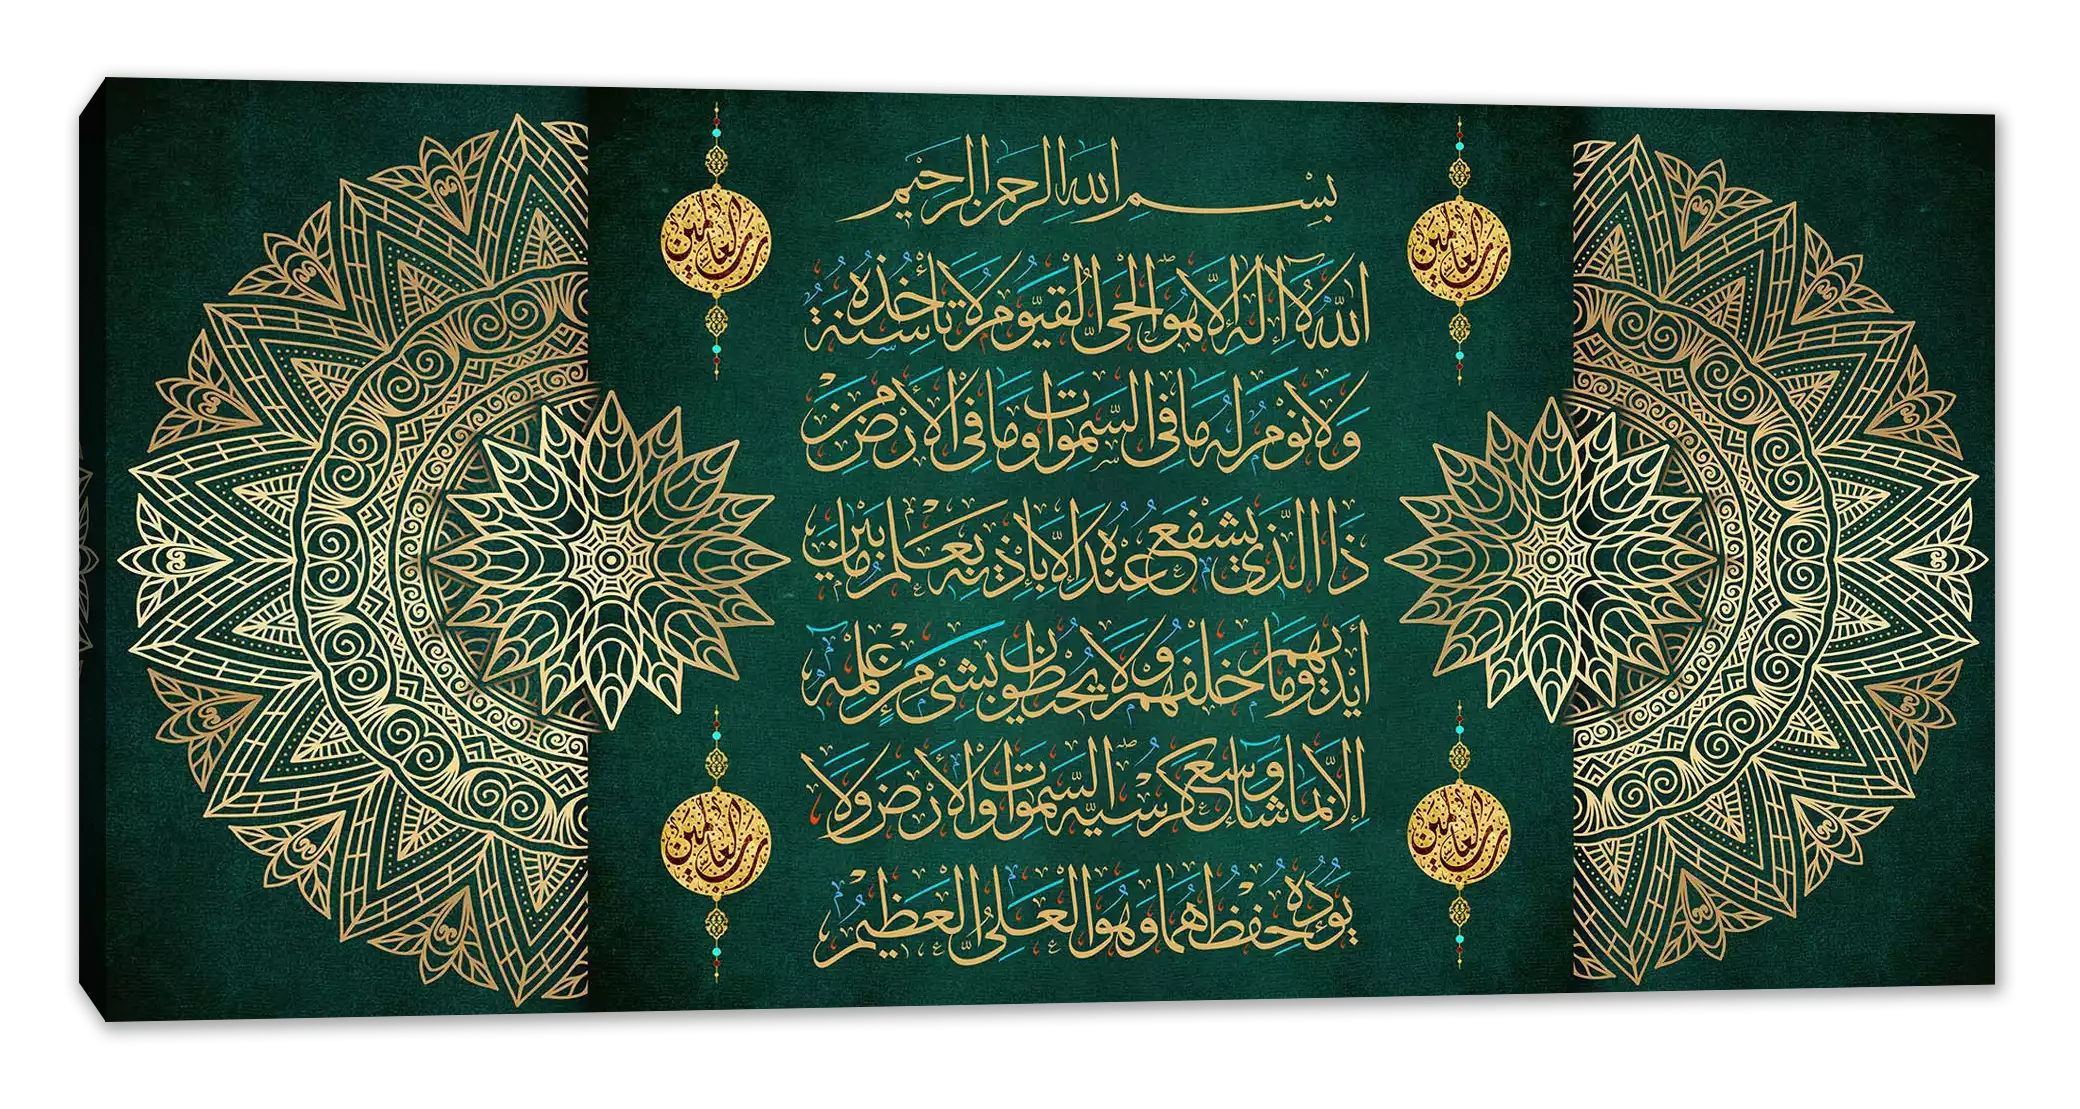 بِسْمِ اللهِ الرحمن الرحيم
الله لا إله إلا هو الحي القيوم لا تأخذه سنة
ولا نوم له ما في السموات وما في الأرض من
ذا الذي يشفع عنده إلا بإذنه يعلم ما بين
أيديهم وما خلفهم ولا يحيطون بشيء من علمه
إلا بما شاء وسع كرسيه السموات والأرض ولا
يؤده حفظهما وهو العلي العظيم
رب العالمين
رب العالمين
رب العالمين
رب العالمين